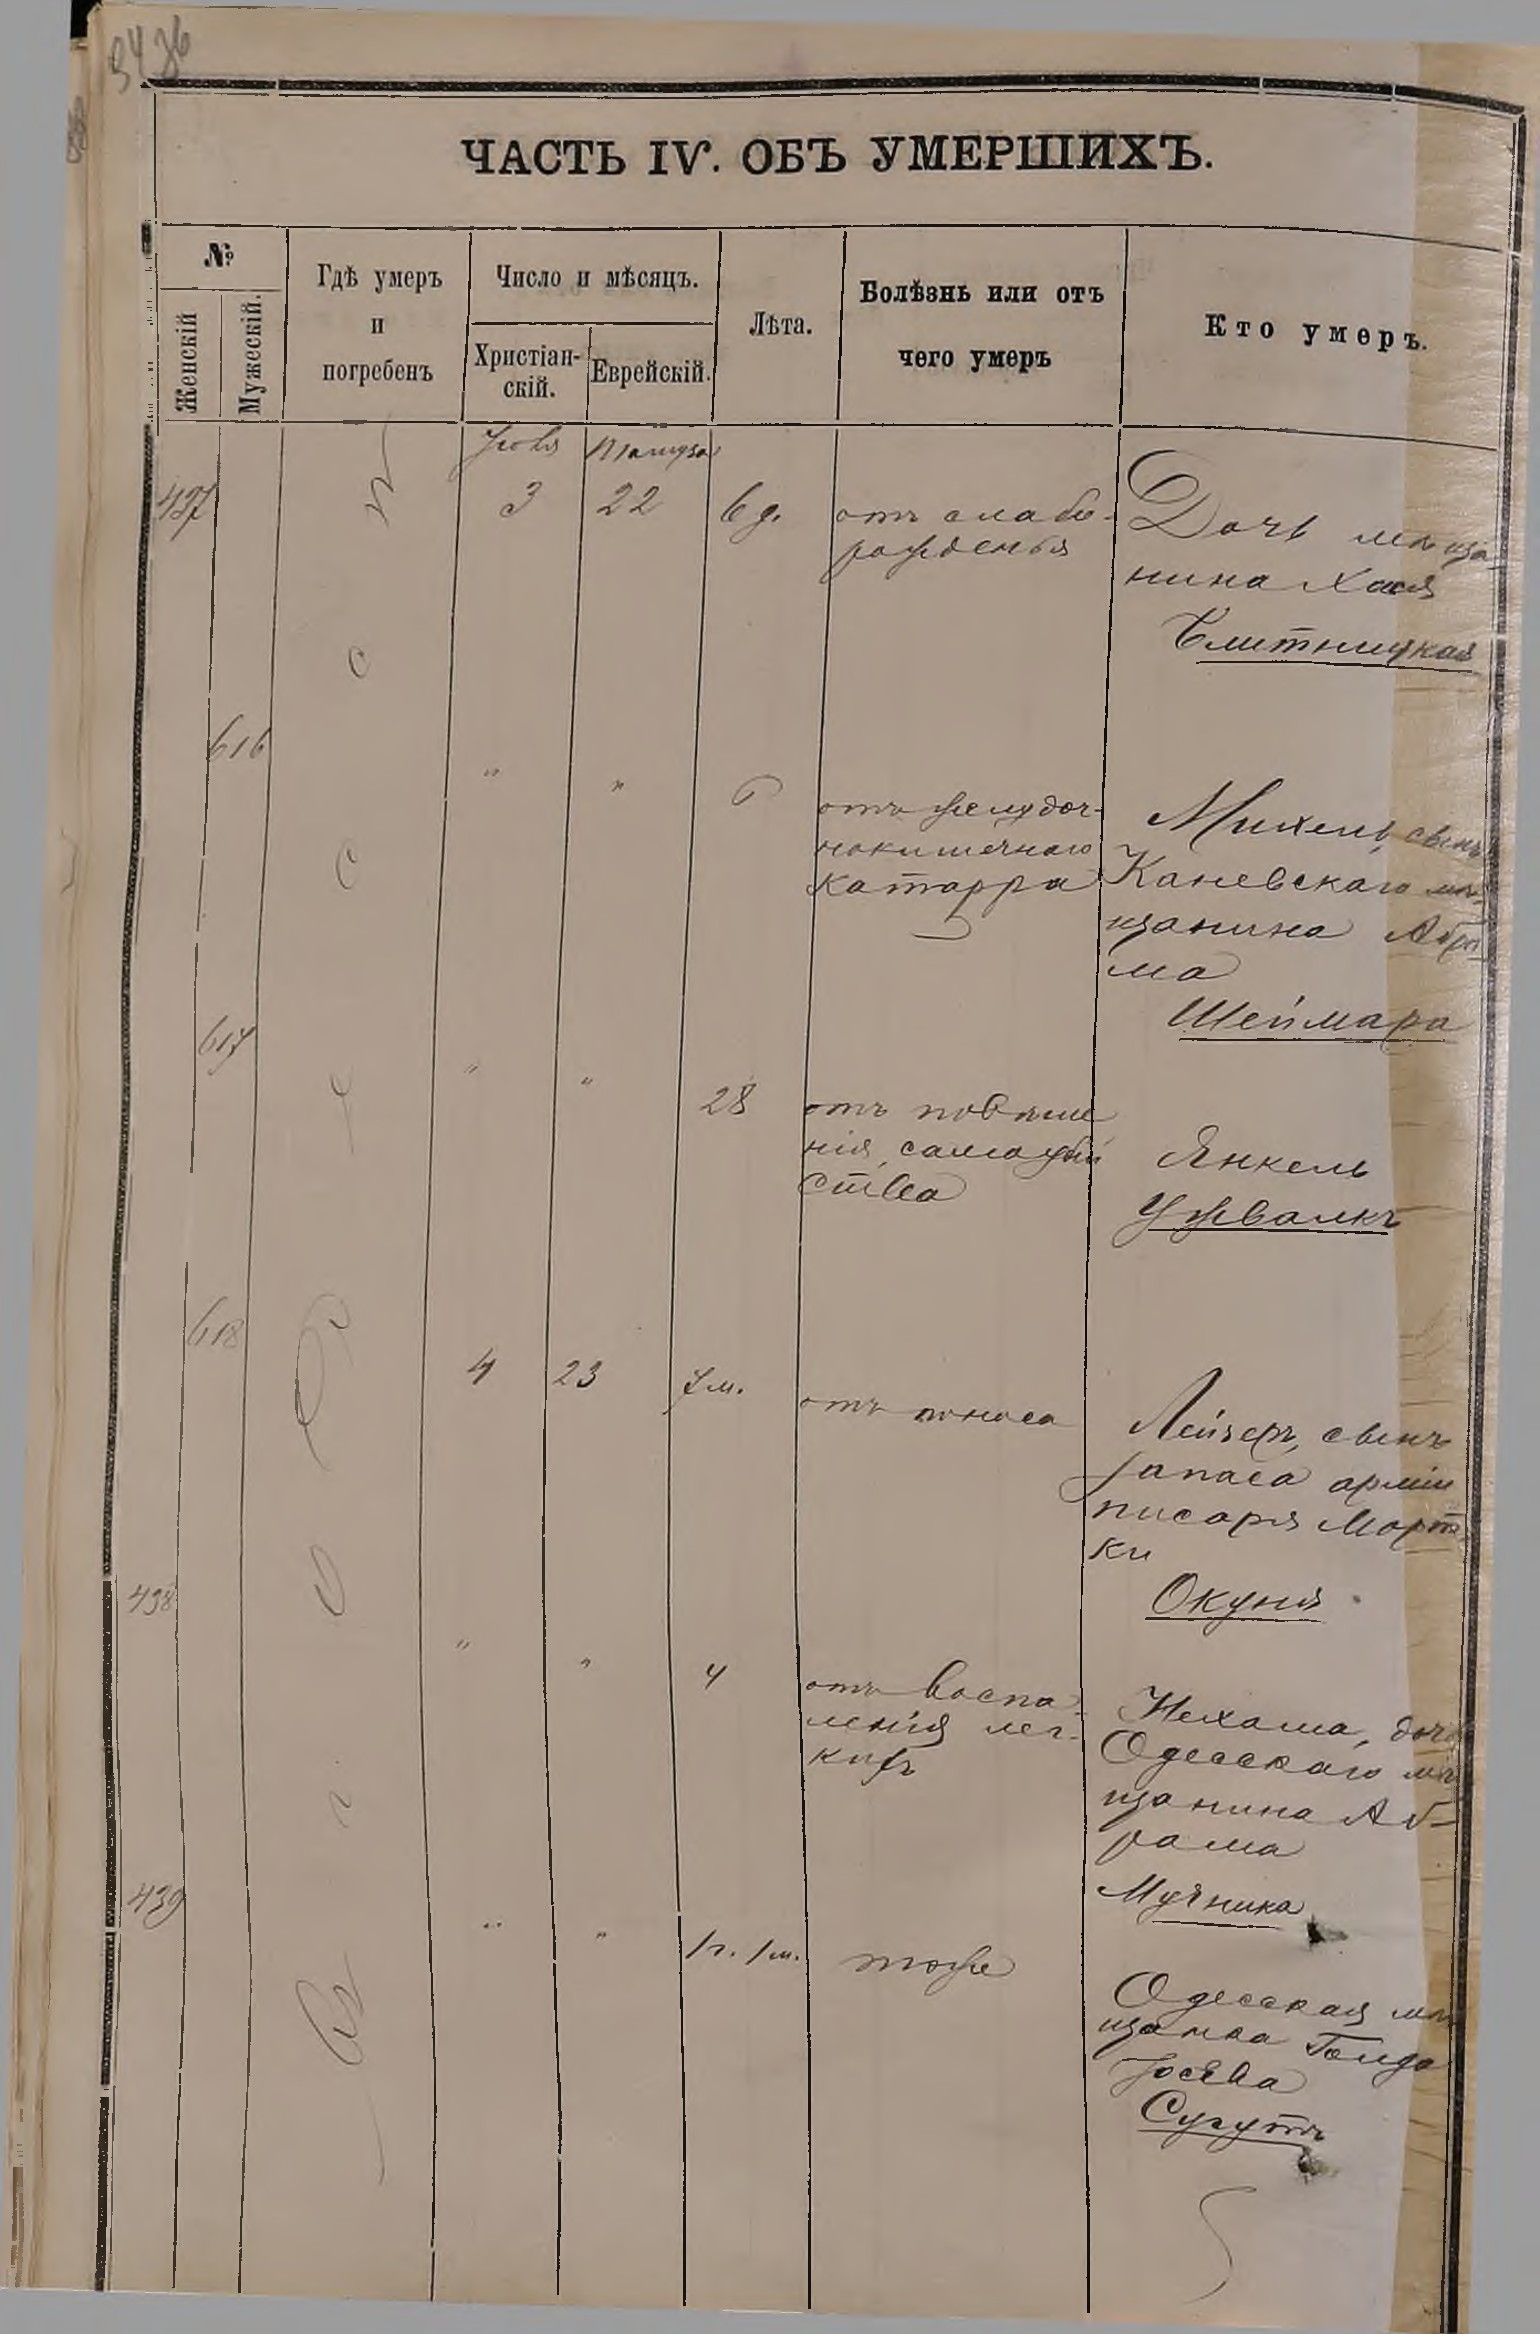 3436
ЧАСТЬ IV. ОБЪ УМЕРШИХЪ.
№
Женскій
Мужескій.
Гдѣ умеръ
и
погребенъ
Число и мѣсяцъ.
Христіан-
скій.
Еврейскій.
Лѣта.
Болѣзнь или отъ
чего умеръ
Кто умеръ.
Въ г. Одессѣ
437
3
22
6 д.
отъ слабо-
рожденья
Дочь мѣща-
нина Хася
616
"
"
отъ желудоч-
нокишечнаго
катарра
Михель, сынъ
Каневскаго мѣ-
щанина Абра
ма
Шеймара
617
"
"
28
отъ повѣше
нія, самоубій
ства
Янкель
Ужвалкъ
618
4
23
7 м.
отъ поноса
Лейзеръ, сынъ
запаса арміи
писаряМорт-
ки
Окуня
438
"
"
4
отъ воспа-
ленія лег-
кихъ
Нехама, дочь
Одесскаго мѣ
щанина Аб-
рама
Мучника
439
"
"
1 г. 1 м.
тоже
Одесская мѣ
щанка Голда
Іосева
Сугутъ